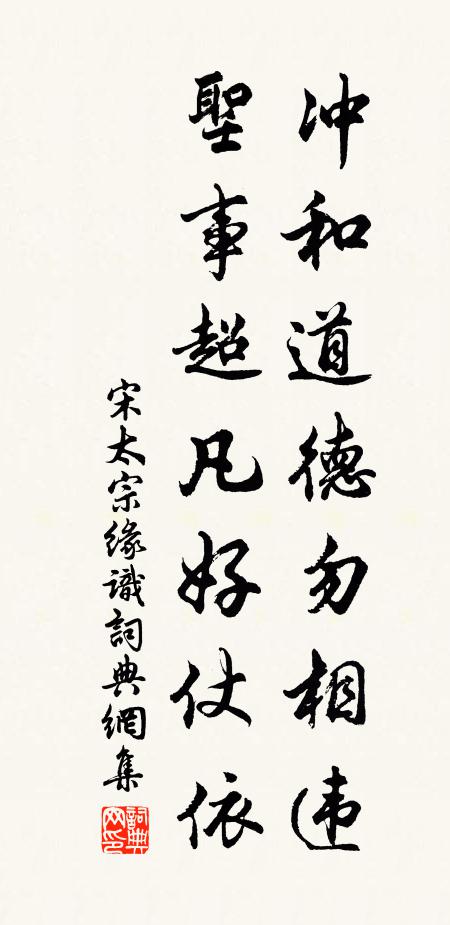 冲和道德勿相违
聖事超凡好仗依
宋太宗缘識詞典網集
詞典网印